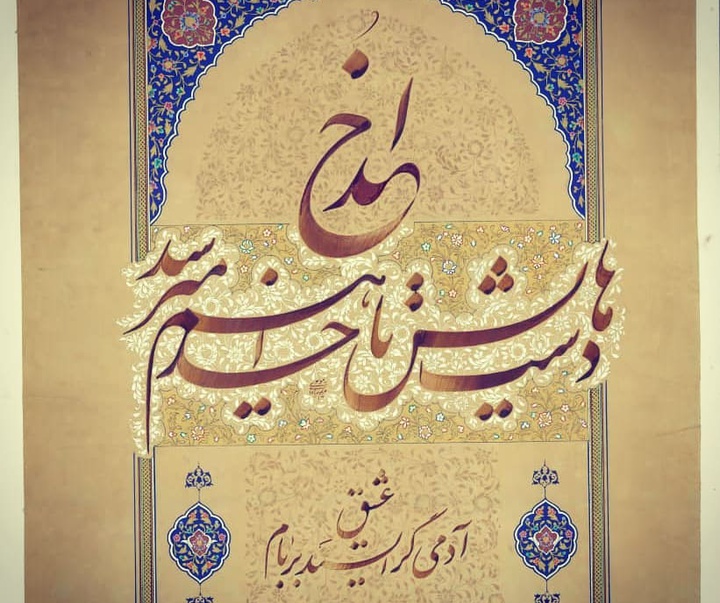 خدا
دستهایش تا خدا هم میرسد
آدمی گر ایستد بر بام عشق